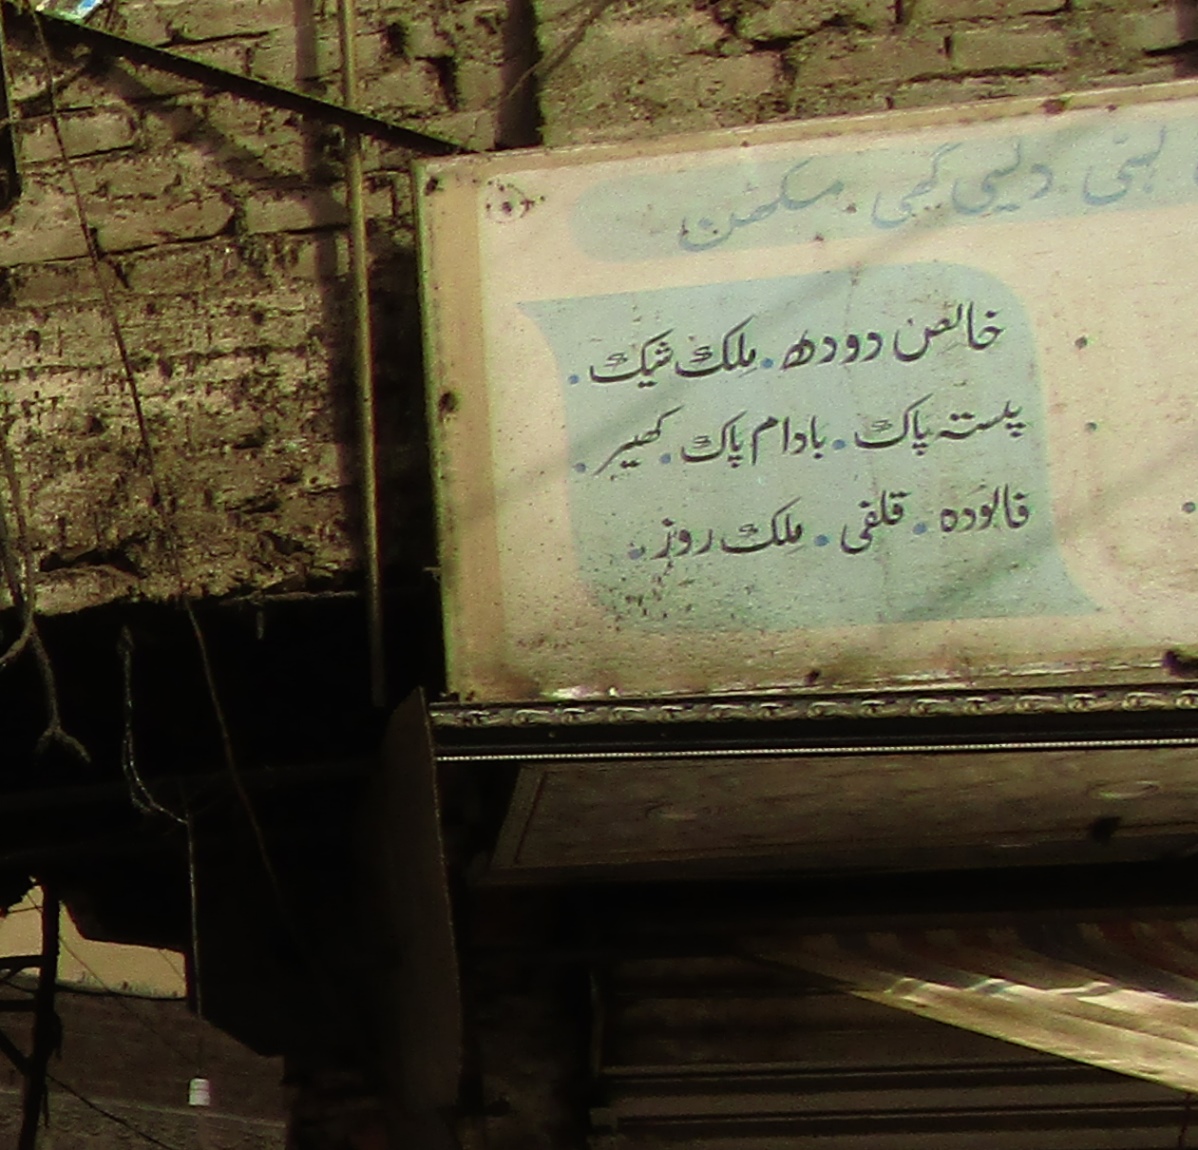 لسّی دیسی گھی مکھن
خالص دودھ . ملک شیک .
پستہ پاک . بادام پاک . کھیر .
فالودہ . قلفی . ملک روز .